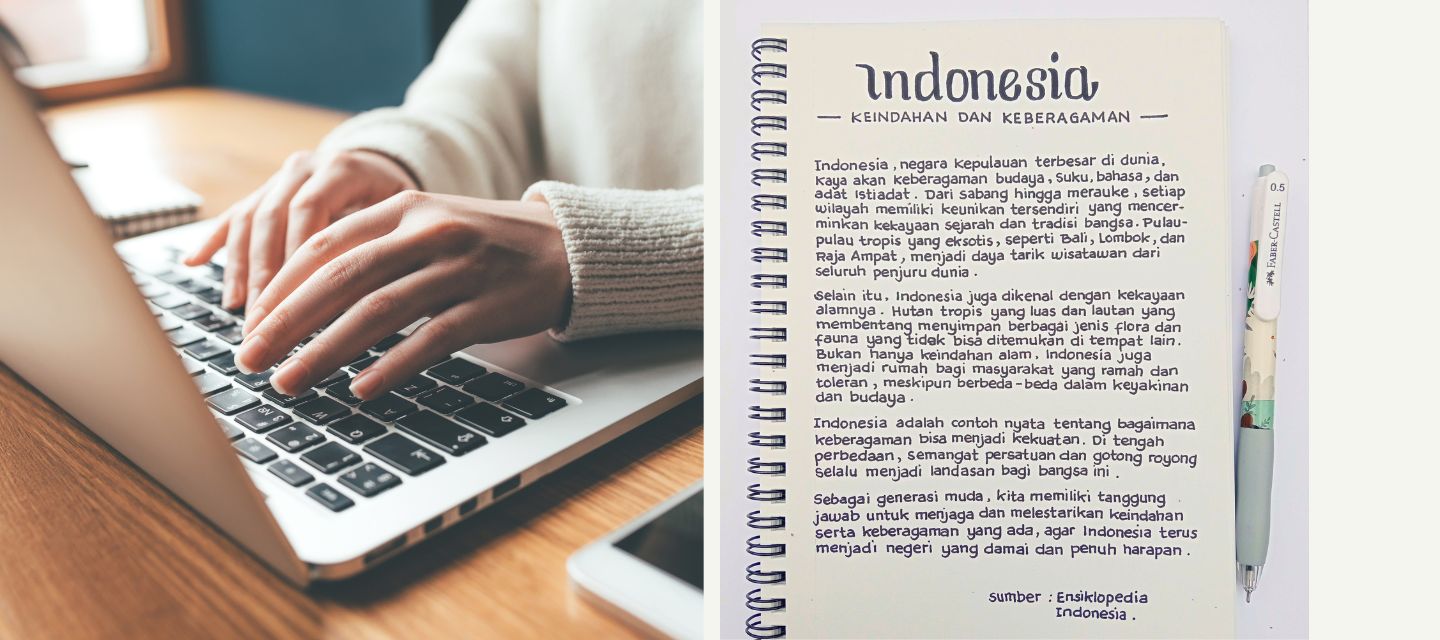 Indonesia
— KEINDAHAN DAN KEBERAGAMAN —
Indonesia, negara kepulauan terbesar di dunia,
kaya akan keberagaman budaya, suku, bahasa, dan
adat istiadat. Dari sabang hingga merauke, setiap
wilayah memiliki keunikan tersendiri yang mencer-
minkan kekayaan sejarah dan tradisi bangsa. Pulau-
pulau tropis yang eksotis, seperti Bali, Lombok, dan
Raja Ampat, menjadi daya tarik wisatawan dari
seluruh penjuru dunia.
Selain itu, Indonesia juga dikenal dengan kekayaan
alamnya. Hutan tropis yang luas dan lautan yang
membentang menyimpan berbagai jenis flora dan
fauna yang tidak bisa ditemukan di tempat lain.
Bukan hanya keindahan alam, Indonesia juga
menjadi rumah bagi masyarakat yang ramah dan
toleran, meskipun berbeda-beda dalam keyakinan
dan budaya.
Indonesia adalah contoh nyata tentang bagaimana
keberagaman bisa menjadi kekuatan. Di tengah
perbedaan, semangat persatuan dan gotong royong
selalu menjadi landasan bagi bangsa ini.
Sebagai generasi muda, kita memiliki tanggung
jawab untuk menjaga dan melestarikan keindahan
serta keberagaman yang ada, agar Indonesia terus
menjadi negeri yang damai dan penuh harapan.
sumber : Ensiklopedia
Indonesia.
0.5
FABER-CASTELL